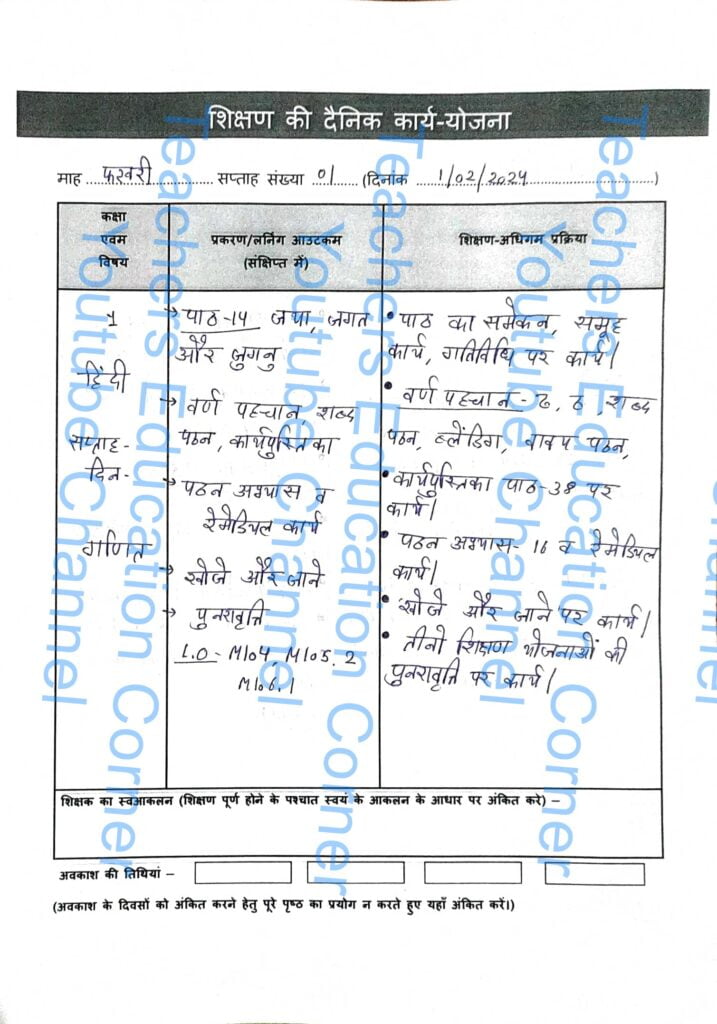 शिक्षण की दैनिक कार्य-योजना
माह ...फरवरी... सप्ताह संख्या ०1...... (दिनांक ....1/02/2024....)
कक्षा
एवम
विषय
प्रकरण/लर्निंग आउटकम
(संक्षिप्त में)
शिक्षण-अधिगम प्रक्रिया
1
हिंदी
सप्ताह-
दिन-
गणित
→ पाठ-14 जया, जगत
और जुगनु
→ वर्ण पहचान, शब्द
पठन, कार्यपुस्तिका
→ पठन अभ्यास व
रेमेडियल कार्य
→ खोजे और जाने
→ पुनरावृत्ति
L.O - M104, M105.2
M106.1
• पाठ का समेकन, समूह
कार्य, गतिविधि पर कार्य।
• वर्ण पहचान - ढ, ठ, शब्द
पठन, ब्लेंडिग, वाक्य पठन,
• कार्यपुस्तिका पाठ-38 पर
कार्य।
• पठन अभ्यास- 16 व रेमेडियल
कार्य।
• खोजे और जाने पर कार्य।
• तीनो शिक्षण योजनाओं की
पुनरावृत्ति पर कार्य।
शिक्षक का स्वआकलन (शिक्षण पूर्ण होने के पश्चात स्वयं के आकलन के आधार पर अंकित करे) –
अवकाश की तिथियां –
(अवकाश के दिवसों को अंकित करने हेतु पूरे पृष्ठ का प्रयोग न करते हुए यहाँ अंकित करें।)
Teachers Education Corner
Youtube Channel
Teachers Education Corner
Youtube Channel
Teachers Education Corner
Youtube Channel